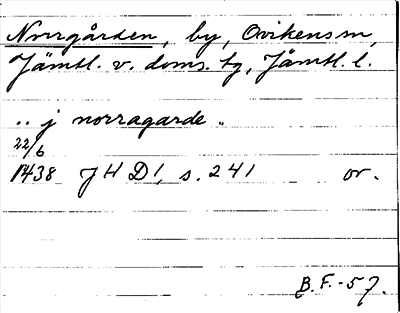 Norrgården, by, Ovikens sn,
Jämtl. v. doms. tg, Jämtl. l.
.. j norragarde ..
22/6
1438 JHD 1, s. 241 or.
B.F.-57.